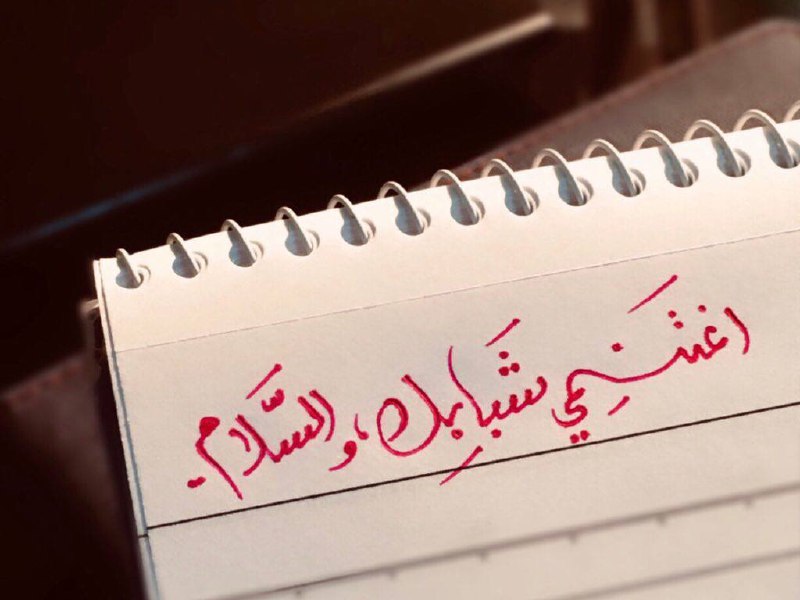 اغتَنِمي شَبابِك، والسَّلام.